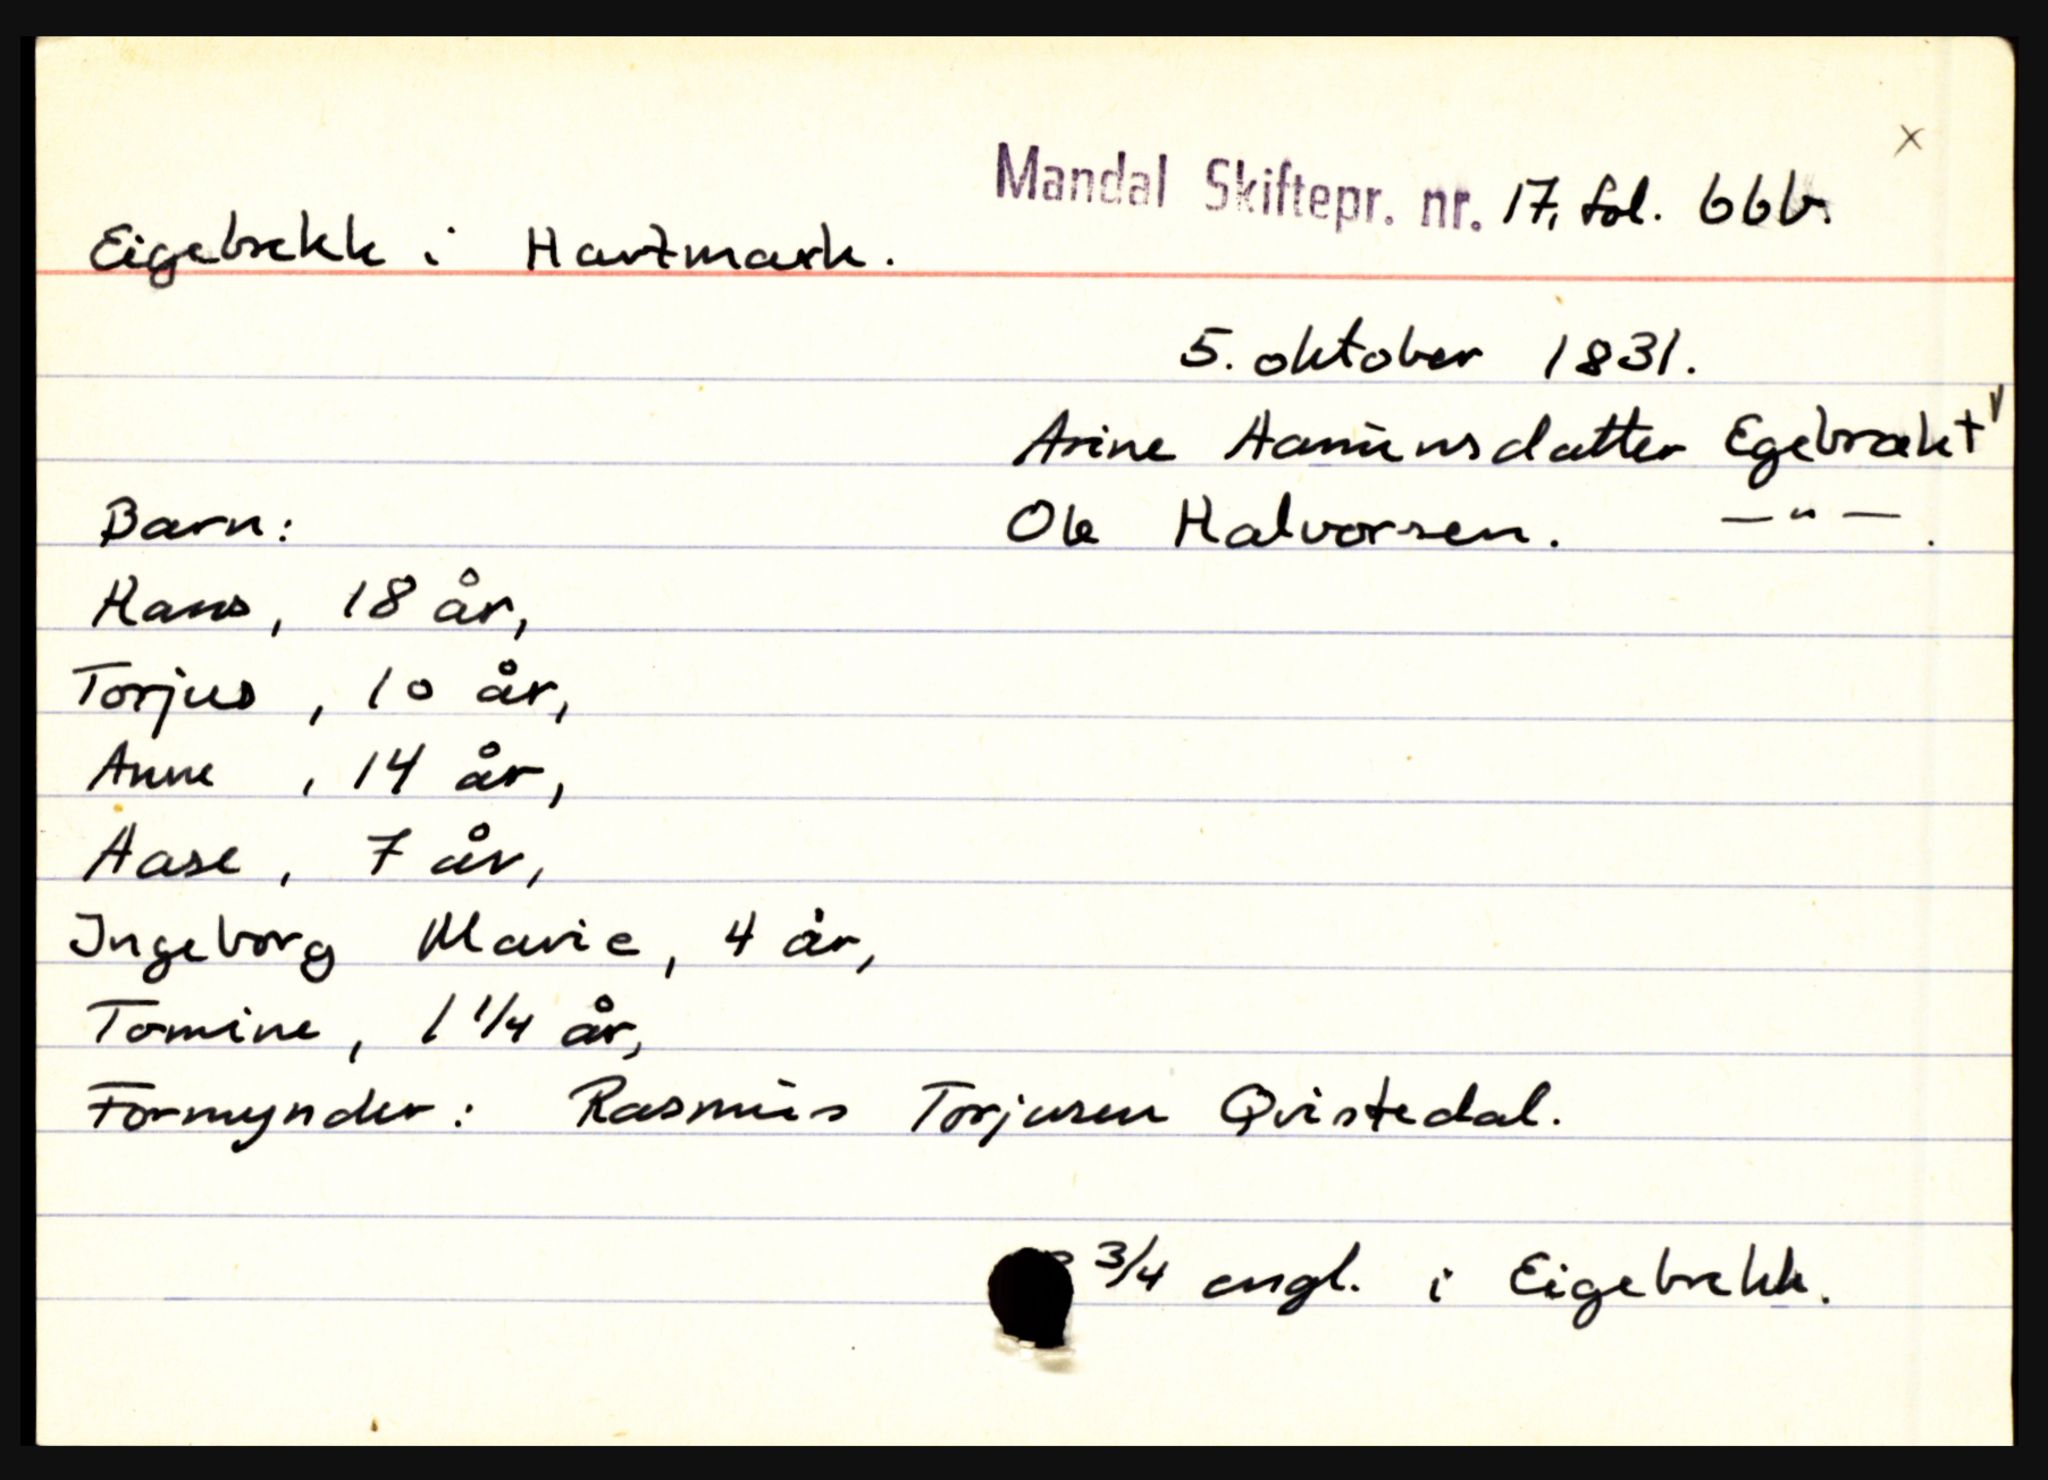 x
Mandal Skiftepr. nr. 17, fol. 66b.
Eigebrekk i Hartmark.
5. oktober 1831.
Arine Hamunsdatter Egebrækt v
Barn:
Ole Halvorsen. —"— .
Hans, 18 år,
Torjus, 10 år,
Anne, 14 år,
Aase, 7 år,
Ingeborg Marie, 4 år,
Tomine, 1 1/4 år,
Formynder: Rasmus Torjusen Qvistedal.
3/4 engl. i Eigebrekk.